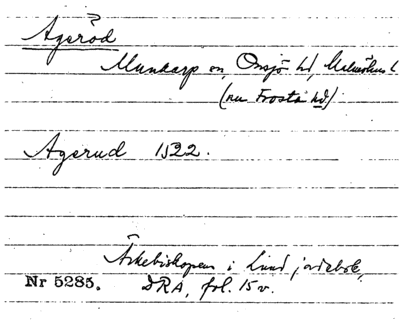 Ageröd
Munkarp sn, Onsjö hd, Malmöhus l.
(nu Frosta hd)
Agerud 1522.
Ärkebiskopens i Lund jordebok,
Nr 5285. DRA, fol. 15 v.